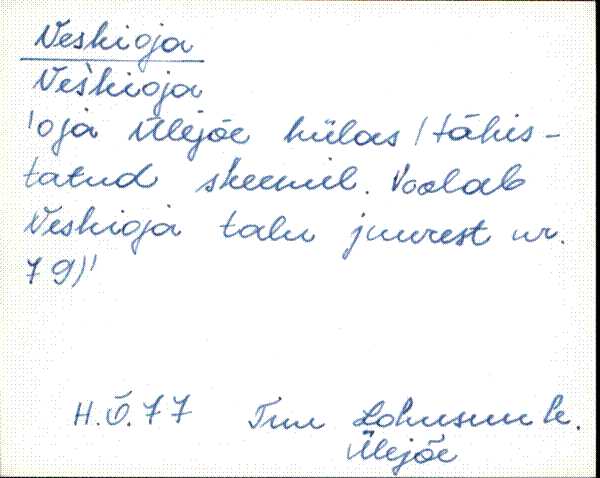 Veskioja
Ves̀kioja
'oja Ülejõe külas (tähis-
tatud skeemil. Voolab
Veskioja talu juurest nr.
79)'
H.Õ.77 Tnn Lohusuu k.
Ülejõe